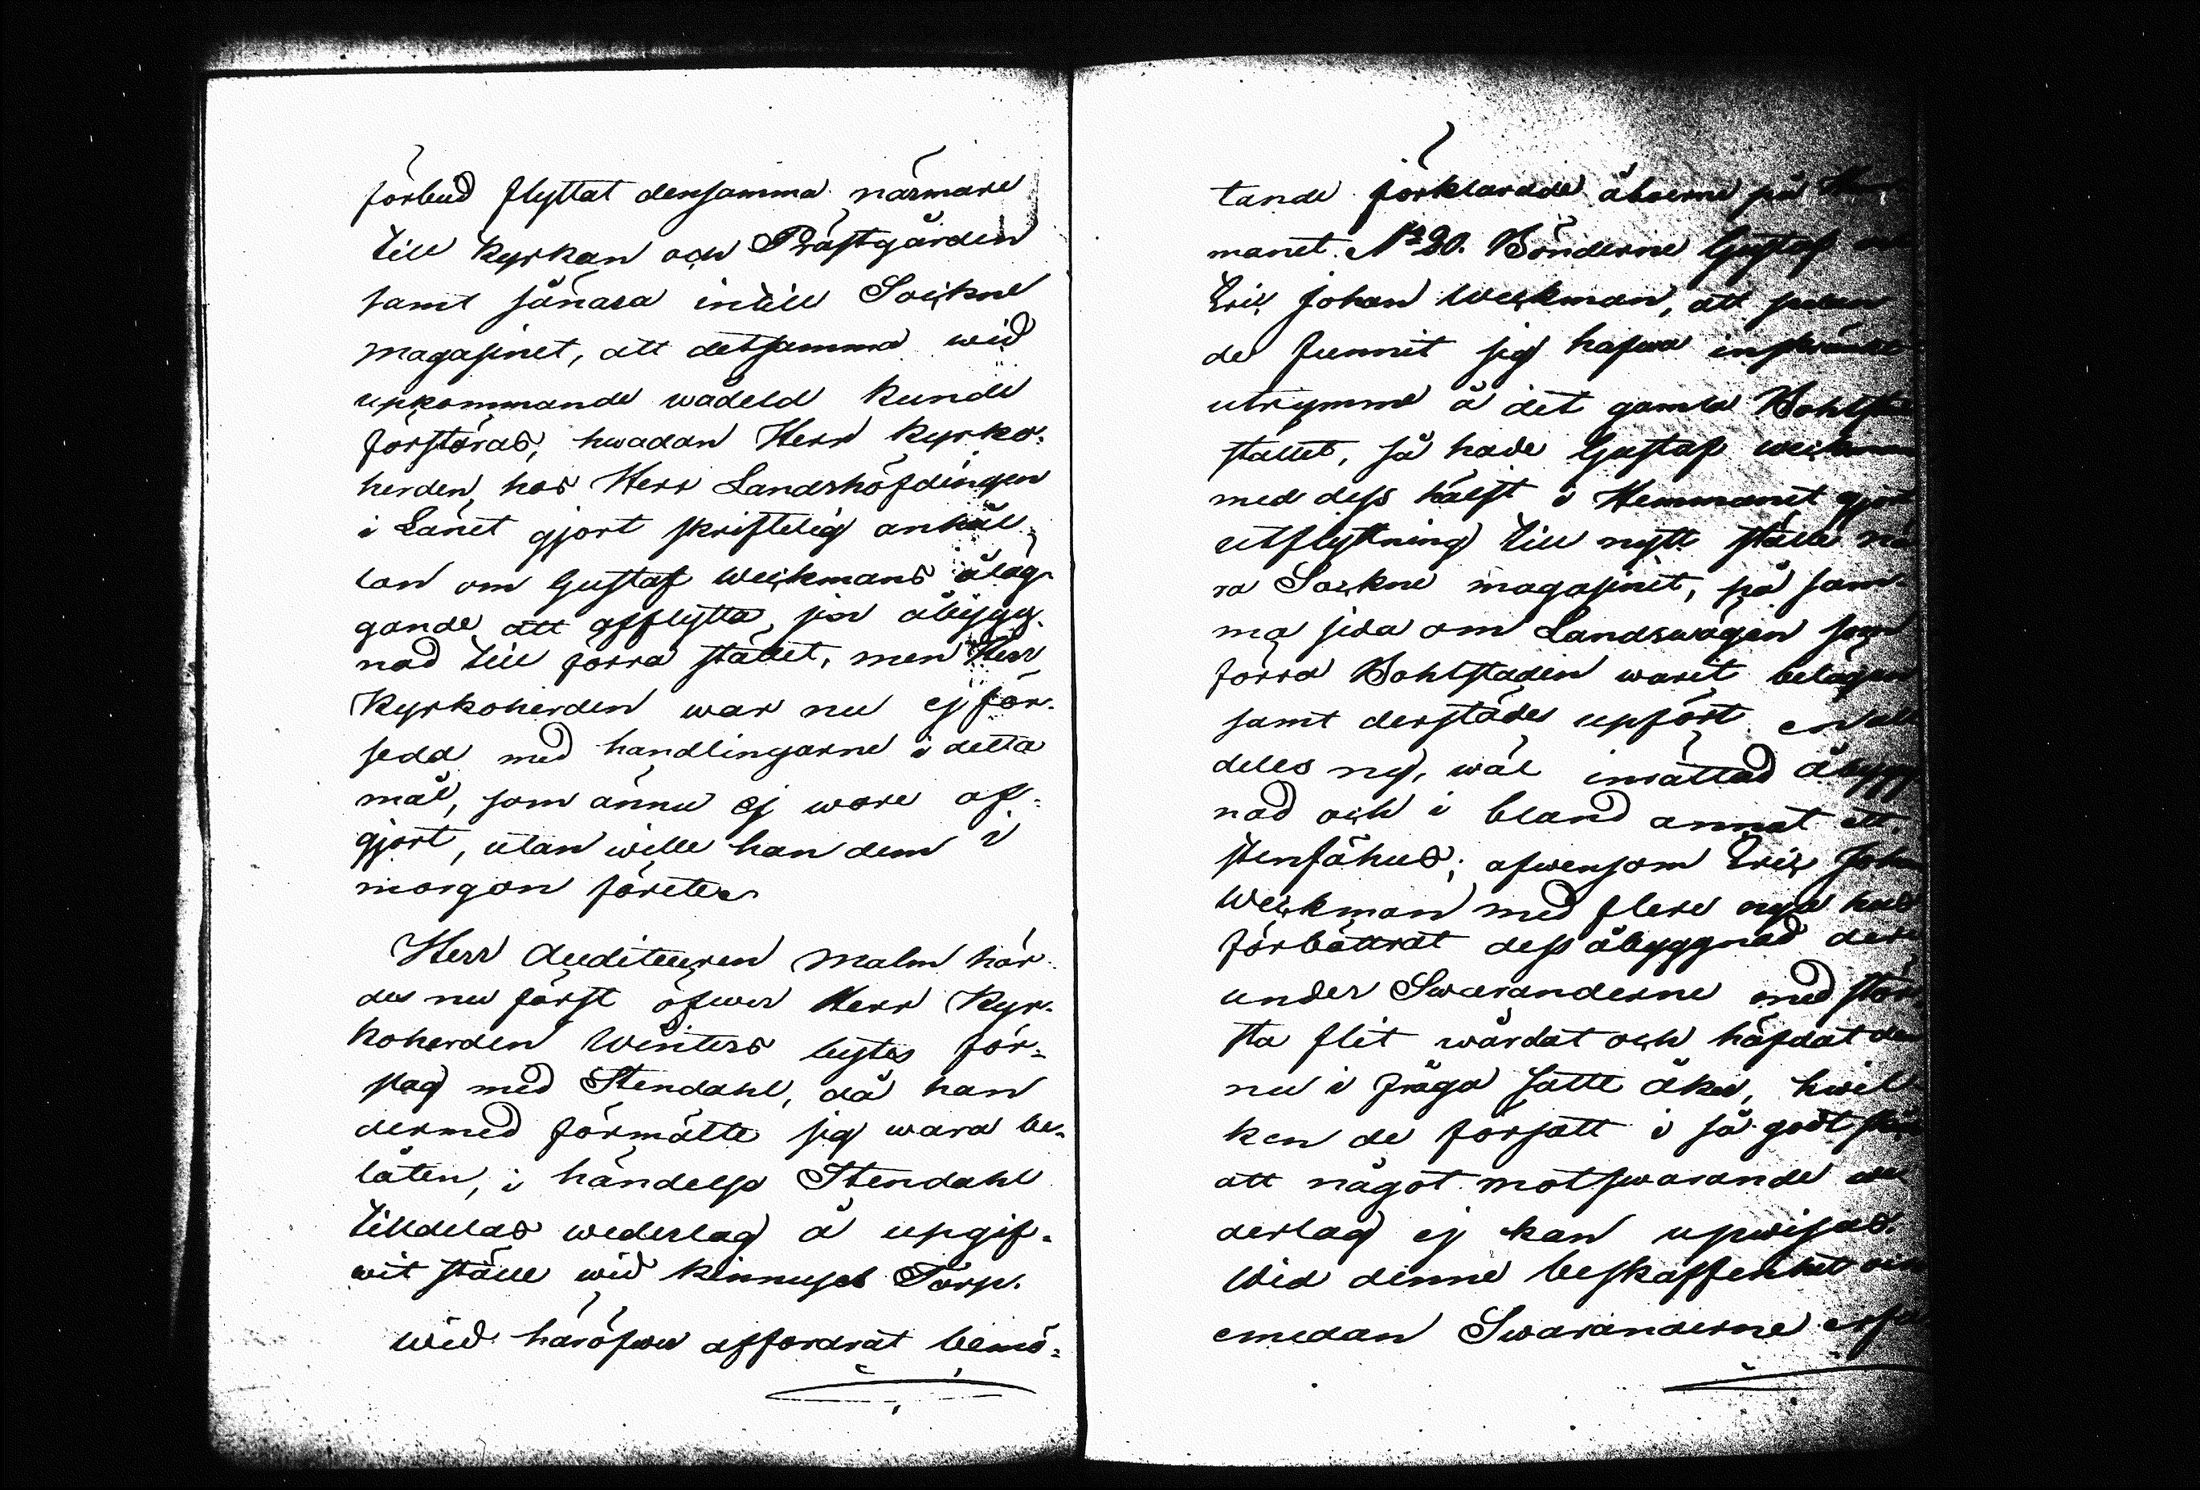 förbud flyttat densamma närmare
till kyrkan och Prästgården
samt så nära intill Sockne
magasinet, att detsamma wid
upkommande wådeld kunde
förstöras, hwadan Herr Kyrko-
herden, hos Herr Landshöfdingen
i Länet gjort skriftelig anhål-
lan om Gustaf Weckmans åläg-
gande att afflytta sin åbygg-
nad till förra stället, men Herr
Kyrkoherden war nu ej för-
sedd med handlingarne i detta
mål, som ännu ej wore af-
gjort, utan wille han dem i
morgon förete.
Herr Auditeuren Malm hör-
des nu först öfwer Herr Kyr-
koherden Winters bytes för-
slag med Stendahl, då han
dermed förmälte sig wara be-
låten, i händelse Stendahl
tilldelas wederlag å upgif-
wit ställe wid Kinnuset Torp.
Wid häröfwer affordrat bemö-
tande förklarade åboerne på
manet No 20. Bönderne Gustaf och
Eric Johan Weckman, att sedan
de funnit sig hafwa inskränkt
utrymme å det gamla Bohlsta
stället, så hade Gustaf Weckman
med dess hälft i Hemmanet gjort
utflyttning till nytt ställe nä-
ra Sockne magasinet, på sam-
ma sida om Landswägen som
förra Bohlstaden warit belägen
samt derstädes upfört en all-
deles ny, wäl inrättad åbygg
nad och i bland annat ett
stenfähus; äfwensom Eric Joh
Weckman med flere nya hus
förbättrat dess åbyggnad der
under Swaranderne med störs
ta flit wårdat och häfdat den
nu i fråga satte åker, hwil-
ken de försatt i så godt
att något motswarande we
derlag ej kan upwisas.
Wid denne beskaffenhet
emedan Swaranderne